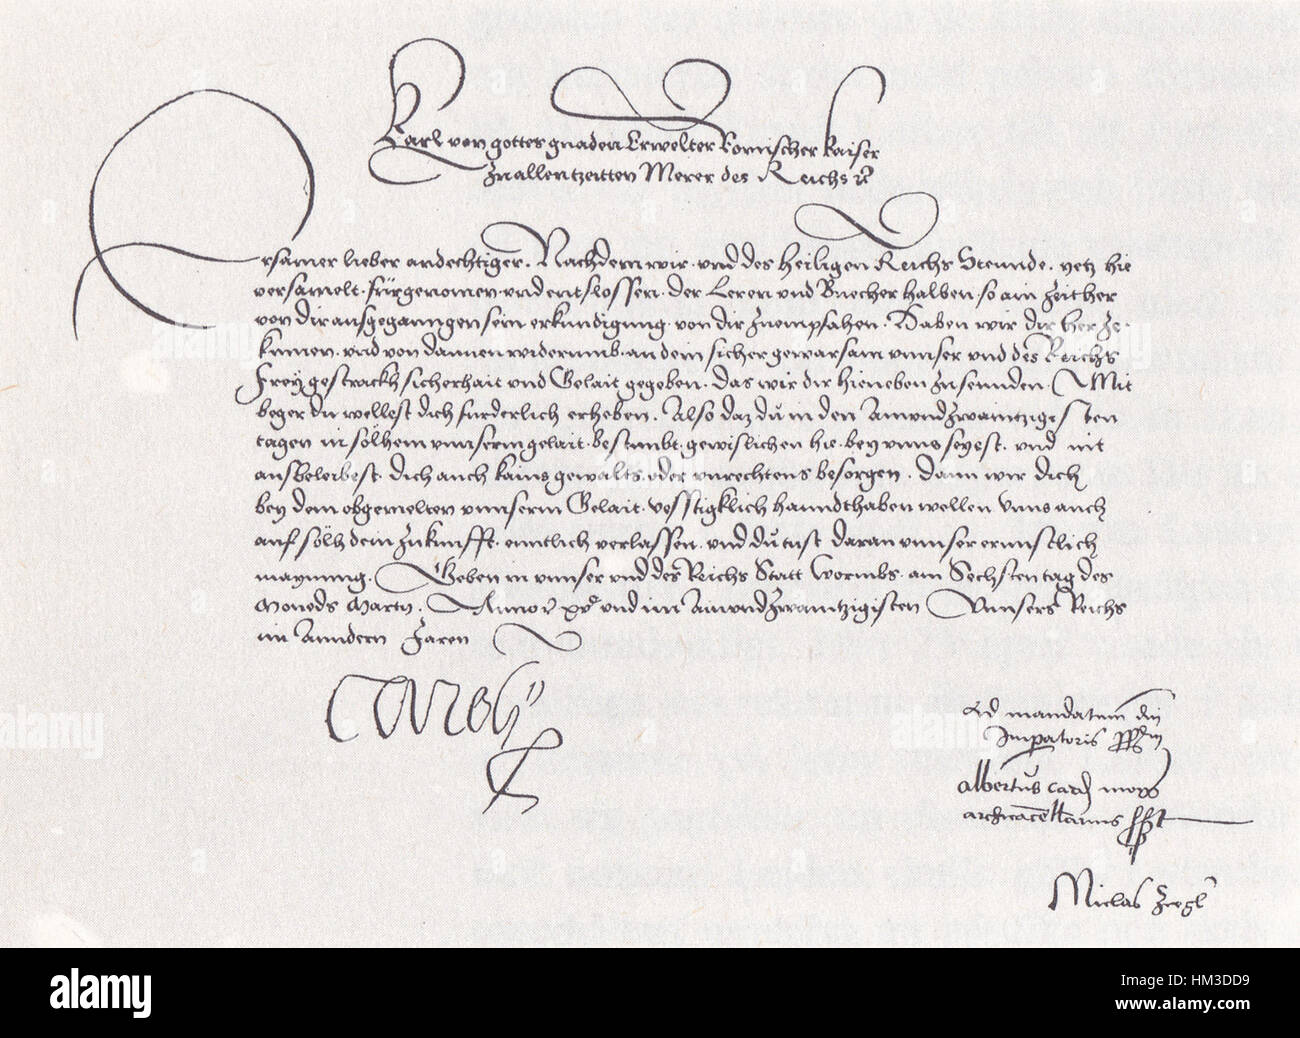 Karl von gottes gnaden Erwelter Romischer Kaiser
Zu allen tzeitten Merer des Reichs ꝛc
Ersamer lieber andechtiger. Nachdem wir. vnd des Heiligen Reichs Stennde. yetz hie
versamelt. fürgenomen. vnd entslossen. der Leren vnd Buecher halben. so ain Zeit her
von dir ausgeganngen sein erkundigung. von dir zu empfahen. Haben wir dir her ze-
kumen. vnd von dannen widerumb. an dein sicher gewarsam vnnser vnd des Reichs
Frey gestrackh sicherhait vnd Gelait gegeben. das wir dir hieneben zusennden. Mit
beger du wellest dich furderlich erheben. Also daz du in den Ainvndzwaintzigisten
tagen in sölhem vnnserm gelait. bestimbt. gewislichen hie. bey vnns seyest. vnd nit
ausbleibest. dich auch kains gewalts. oder vnrechtens besorgen. dann wir dich
bey dem obgemelten vnnserm Gelait. vesstigklich hanndthaben wellen. Vnns auch
auf sölh dein Zukunfft. enntlich verlassen. vnd du tust daran vnnser ernnstlich
maynung. Geben in vnnser vnd des Reichs Statt Wormbs. am Sechsten tag des
Moneds Marty. Anno ꝛc xvᶜ vnd im Ainvndzwaintzigisten Vnnsers Reichs
im Anndern Jaren
Carolus
Ad mandatum dni
Imperatoris pprm
Albertus card mogo
archicancellarius sst
Niclas Ziegler
alamy
Image ID: HM3DD9
www.alamy.com